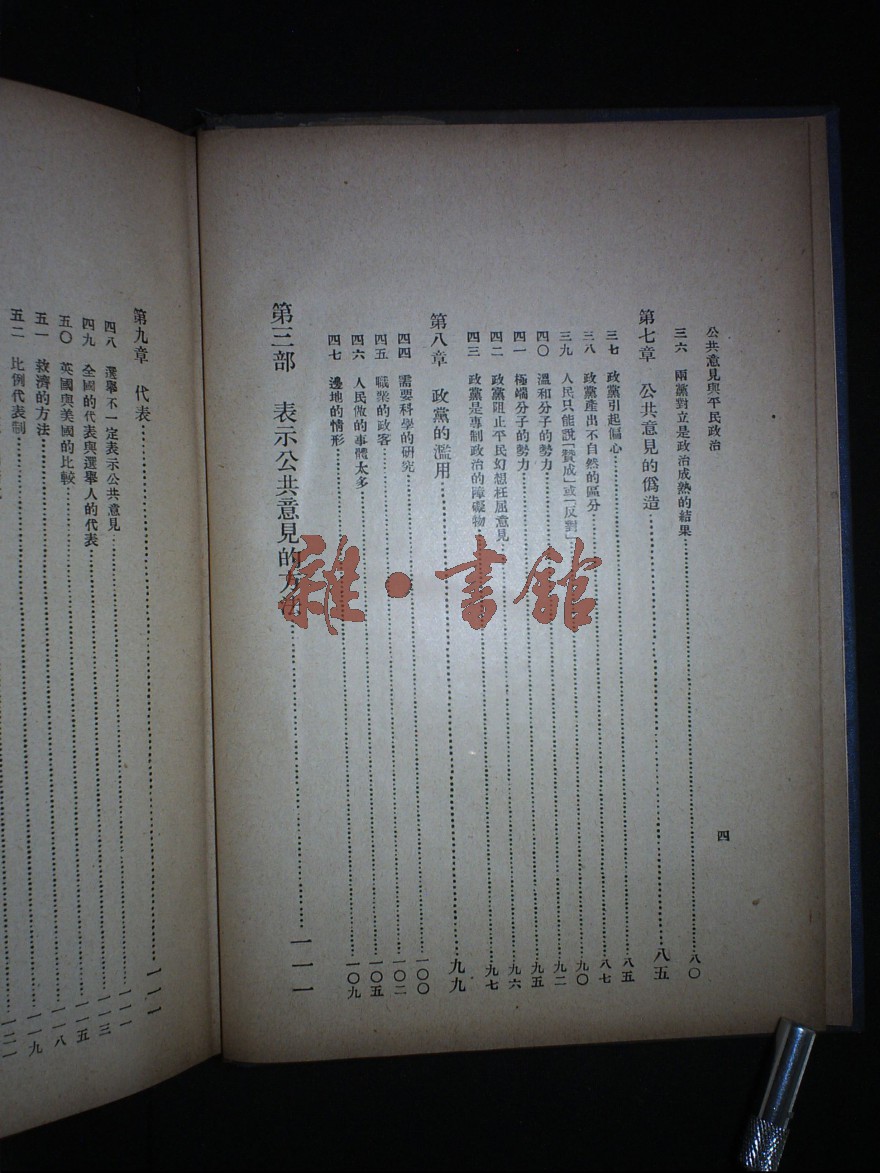 公共意見與平民政治
三六 兩黨對立是政治成熟的結果……八〇
第七章 公共意見的僞造……八五
三七 政黨引起偏心……八五
三八 政黨產出不自然的區分……八七
三九 人民只能說「贊成」或「反對」……九〇
四〇 溫和分子的勢力……九二
四一 極端分子的勢力……九五
四二 政黨阻止平民幻想枉屈意見……九六
四三 政黨是專制政治的障礙物……九七
第八章 政黨的濫用……九九
四四 需要科學的研究……一〇〇
四五 職業的政客……一〇二
四六 人民做的事體太多……一〇五
四七 邊地的情形……一〇九
第三部 表示公共意見的方法……一一一
四
第九章 代表……一一一
四八 選舉不一定表示公共意見……一一一
四九 全國的代表與選舉人的代表……一一三
五〇 英國與美國的比較……一一五
五一 救濟的方法……一一八
五二 比例代表制……一一九
一二一
雜·書館